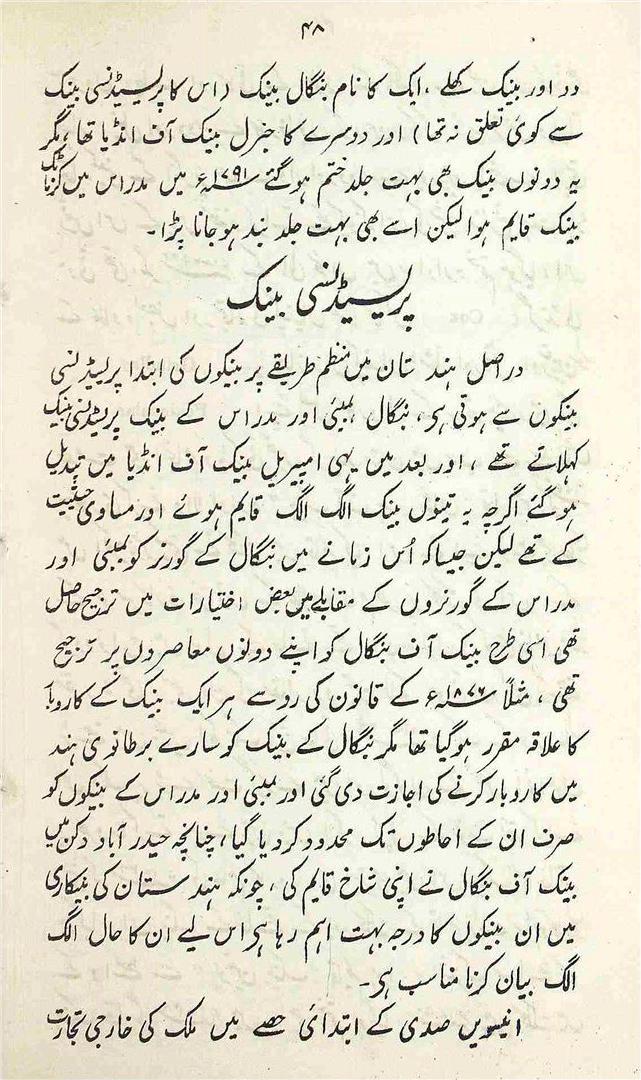 ۴۸
دد اور بینک کھلے، ایک کا نام بنگال بینک (اس کا پرلسیڈنسی بینک
سے کوئی تعلق نہ تھا) اور دوسرے کا جنرل بینک آف انڈیا تھا، مگر
یہ دونوں بینک بھی بہت جلد ختم ہوگئے ۱۷۹۱ء میں مدراس میں کرناٹک
بینک قایم ہوا لیکن اسے بھی بہت جلد بند ہو جانا پڑا۔
پرلسیڈنسی بینک
دراصل ہندستان میں منظم طریقے پر بینکوں کی ابتدا پرلسیڈنسی
بینکوں سے ہوتی ہی، بنگال، بمبئی اور مدراس کے بینک پرلسیڈنسی بینک
کہلاتے تھے، اور بعد میں یہی امپیریل بینک آف انڈیا میں تبدیل
ہوگئے اگرچہ یہ تینوں بینک الگ الگ قایم ہوئے اور مساوی حیثیت
کے تھے لیکن جیسا کہ اُس زمانے میں بنگال کے گورنر کو بمبئی اور
مدراس کے گورنروں کے مقابلے میں بعض اختیارات میں ترجیح حاصل
تھی اسی طرح بینک آف بنگال کو اپنے دونوں معاصروں پر ترجیح
تھی، مثلاً ۱۸۷۶ء کے قانون کی رو سے ہر ایک بینک کے کاروبار
کا علاقہ مقرر ہوگیا تھا مگر بنگال کے بینک کو سارے برطانوی ہند
میں کاروبار کرنے کی اجازت دی گئی اور بمبئی اور مدراس کے بینکوں کو
صرف ان کے احاطوں تک محدود کردیا گیا، چنانچہ حیدرآباد دکن میں
بینک آف بنگال نے اپنی شاخ قایم کی، چونکہ ہندستان کی بینکاری
میں ان بینکوں کا درجہ بہت اہم رہا ہی اس لیے ان کا حال الگ
الگ بیان کرنا مناسب ہی۔
انیسویں صدی کے ابتدائی حصے میں ملک کی خارجی تجارت